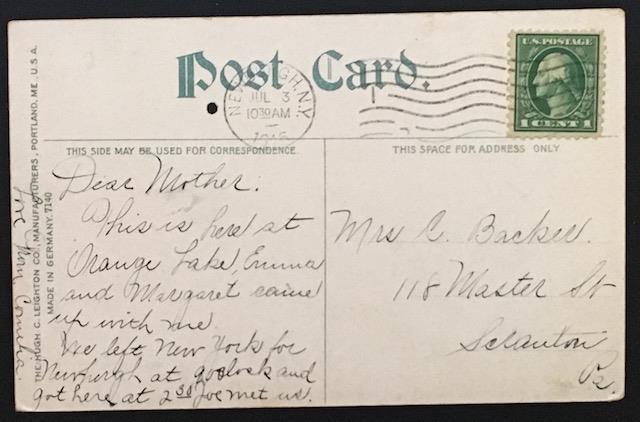 Post Card.
U.S. POSTAGE
1 CENT 1
JUL 3
10 30 AM
N.Y.
THIS SIDE MAY BE USED FOR CORRESPONDENCE.
THIS SPACE FOR ADDRESS ONLY
THE HUGH C. LEIGHTON CO., MANUFACTURERS, PORTLAND, ME., U.S.A.
MADE IN GERMANY. 7140
Dear Mother:
This is here at
Orange Lake, Emma
and Margaret came
up with me.
We left New York for
Newburgh at 9 oclock and
got here at 2 30 Joe met us.
Mrs C. Backer.
118 Master St
Scranton
Pa.